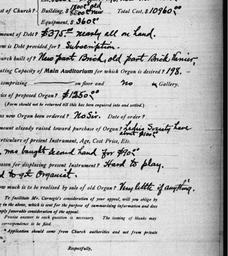 Roof old
st of Church? Building, $ Total Cost, $10960.00
Equipment, $360.00
mount of Debt? $375.00 nearly all on hand.
n is Debt provided for? Subscription.
urch built of? New part Brick, old part Brick Veneer
ating Capacity of Main Auditorium for which Organ is desired? 198.
comprising on floor and no in Gallery.
ice of proposed Organ? $1250.00
(Form should not be returned till this has been inquired into and settled.)
as new Organ been Ordered? No Sir. Date of order?
mount already raised toward purchase of Organ? Ladies Society have
about $100.00
rticulars of present Instrument, Age, Cost Price, Etc.
was bought second hand for $90.00
eason for displacing present Instrument? Hard to play.
d to get Organist.
ow much is to be realised by sale of old Organ? Very little if anything.
To facilitate Mr. Carnegie's consideration of your appeal, will you oblige by
in the above, which is sent for the purpose of summarising information and does
mply favorable consideration of the appeal.
Precise answer to each question is necessary. The ignoring of thanks may
correspondence to be filed.
Application should come from Church authorities and not from private
Respectfully,